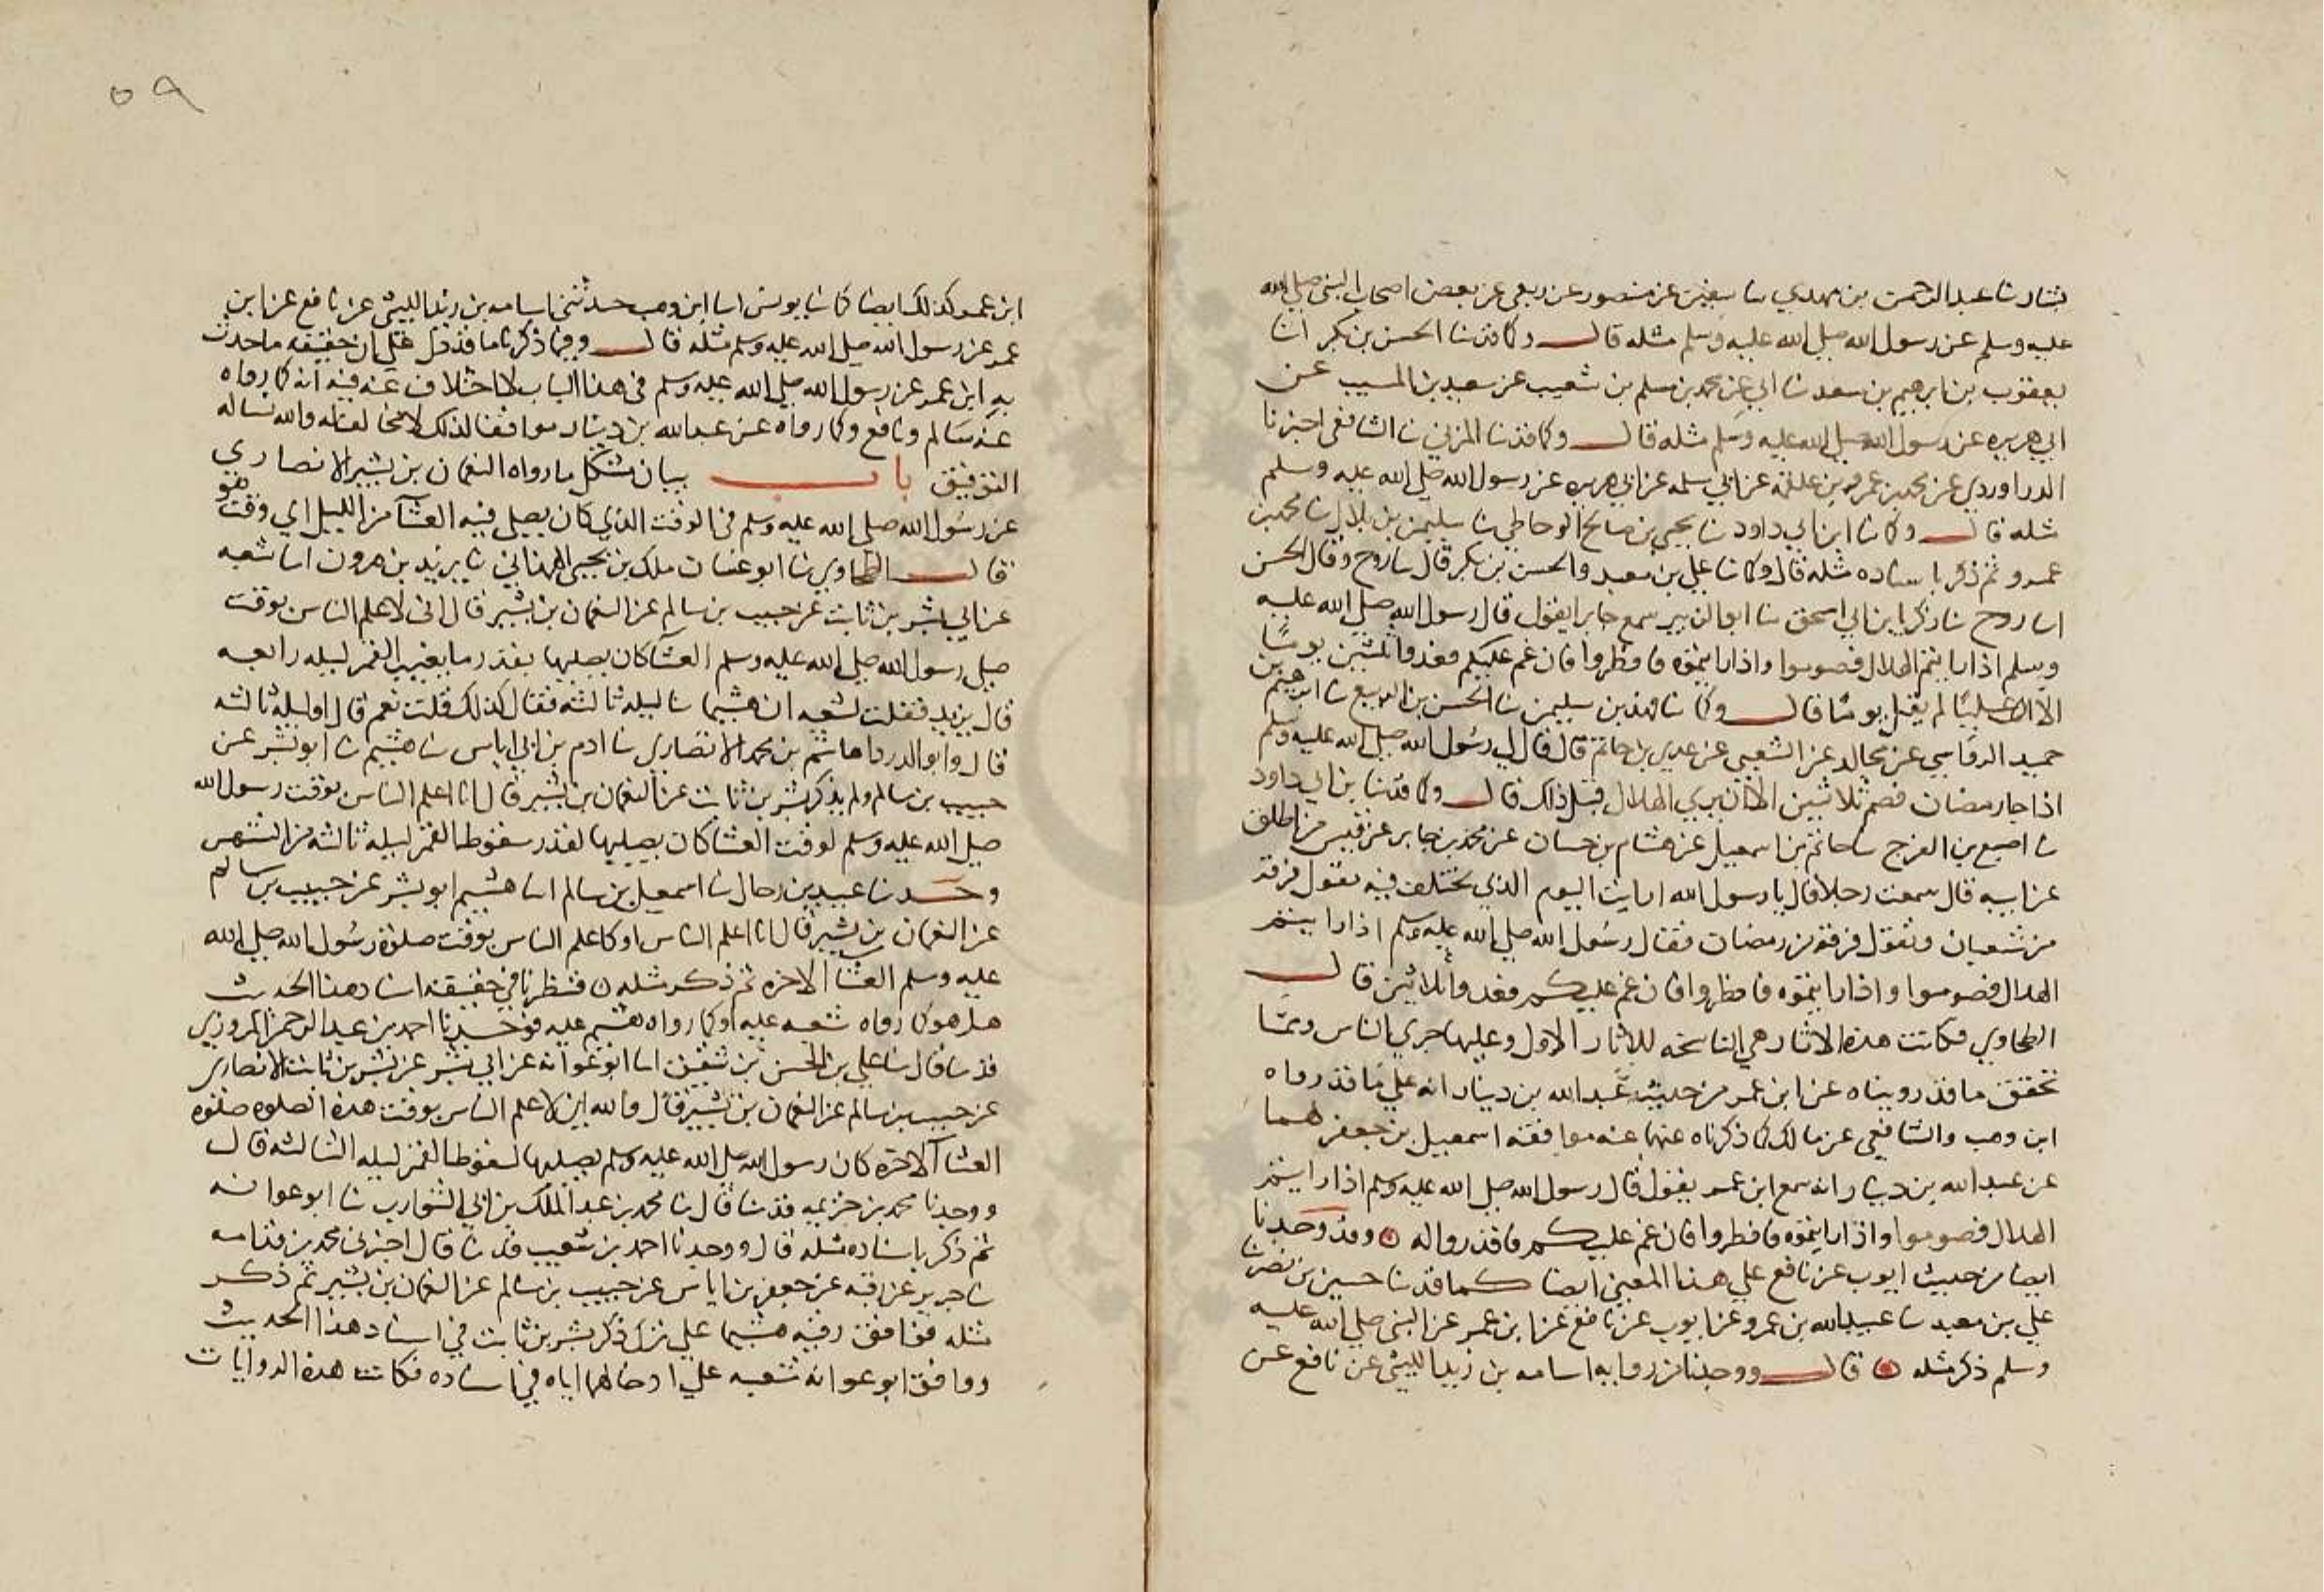 بشار نا عبد الرحمن بن مهدي نا سفين عن منصور عن ربعي عن بعض اصحاب النبي صلى الله
عليه وسلم عن رسول الله صلى الله عليه وسلم مثله قال وكما قد نا الحسن بن بكر انا
يعقوب بن ابرهيم بن سعد نا ابي عن محمد بن مسلم بن شعيب عن سعيد بن المسيب عن
ابي هريره عن رسول الله صلى الله عليه وسلم مثله قال وكما قد نا المزني نا الشافعي اخبرنا
الدراوردي عن محمد بن عمرو بن علقمة عن ابي سلمه عن ابي هريره عن رسول الله صلى الله عليه وسلم
مثله قال وكما نا ابن ابي داود نا يحيى بن صالح الوحاظي نا سليمن بن بلال نا محمد بن
عمرو ثم ذكر باسناده مثله قال وكما نا علي بن معبد والحسن بن بكر قال نا روح وقال الحسن
انا روح نا زكريا بن ابي اسحق نا ابو الزبير سمع جابرا يقول قال رسول الله صلى الله عليه
وسلم اذا رايتم الهلال فصوموا واذا رايتموه فافطروا فان غم عليكم فعدوا ثلثين يوما
الا ان عليا لم يقل يوما قال وكما نا فهد بن سليمن نا الحسن بن الربيع نا ابرهيم بن
حميد الرواسي عن مجالد عن الشعبي عن عدي بن حاتم قال قال لي رسول الله صلى الله عليه وسلم
اذا جا رمضان فصم ثلاثين الا ان يرى الهلال قبل ذلك قال وكما قد نا ابن ابي داود
نا اصبع بن الفرج نا حاتم بن اسمعيل عن هشام بن حسان عن محمد بن جابر عن قيس بن طلق
عن ابيه قال سمعت رجلا قال يا رسول الله ارايت اليوم الذي يختلف فيه تقول فرقة
من شعبان وتقول فرقة من رمضان فقال رسول الله صلى الله عليه وسلم اذا رايتم
الهلال فصوموا واذا رايتموه فافطروا فان غم عليكم فعدوا ثلاثين قال
الطحاوي فكانت هذه الاثار هي الناسخه للاثار الاول وعليها جري الناس ومما
تحقق ما قد رويناه عن ابن عمر من حديث عبد الله بن دينار انه على ما قد رواه
ابن وهب والشافعي عن مالك كما ذكرناه عنهما عنه موافقة اسمعيل بن جعفر هما
عن عبد الله بن دينار انه سمع ابن عمر يقول قال رسول الله صلى الله عليه وسلم اذا رايتم
الهلال فصوموا واذا رايتموه فافطروا فان غم عليكم فاقدروا له وقد وجدنا
ايضا من حديث ايوب عن نافع علي هذا المعنى ايضا كما قد نا حسين بن نصر نا
علي بن معبد نا عبيد الله بن عمرو عن ايوب عن نافع عن ابن عمر عن النبي صلى الله عليه
وسلم ذكر مثله قال ووجدنا من رواية اسامه بن زيد الليثي عن نافع عن
٥٩
ابن عمر كذلك ايضا كما نا يونس انا ابن وهب حدثني اسامه بن زيد الليثي عن نافع عن ابن
عمر عن رسول الله صلى الله عليه وسلم مثله قال وفيما ذكرنا ما قد دل على ان حقيقه ما حدث
به ابن عمر عن رسول الله صلى الله عليه وسلم في هذا الباب لا اختلاف عنه فيه انه كما رواه
عنه سالم ونافع وكما رواه عن عبد الله بن دينار موافقا لذلك لا مخالفا له والله نساله
التوفيق باب بيان مشكل ما رواه النعمان بن بشير الانصاري
عن رسول الله صلى الله عليه وسلم في الوقت الذي كان يصلي فيه العشا من الليل اي وقت هو
قال الطحاوي نا ابو غسان ملك بن يحيى الهمداني نا يزيد بن هرون انا شعبه
عن ابي بشر بن ثابت عن حبيب بن سالم عن النعمان بن بشير قال اني لاعلم الناس بوقت
صلى رسول الله صلى الله عليه وسلم العشا كان يصليها بقدر ما يغيب القمر ليله رابعه
قال يزيد فقلت لشعبه ان هشيما نا ليلة ثالثة فقال كذلك قلت نعم قال او ليله ثالثه
قال وابو الدردا هاشم بن محمد الانصاري نا ادم بن ابي اياس نا هشيم نا ابو بشر عن
حبيب بن سالم ولم يذكر بشر بن ثابت عن النعمان بن بشير قال انا اعلم الناس بوقت رسول الله
صلى الله عليه وسلم لوقت العشا كان يصليها لقدر سقوط القمر ليله ثالثه من الشهر
وحدنا عبيد بن رحال نا اسمعيل بن سالم انا هشيم ابو بشر عن حبيب بن سالم
عن النعمان بن بشير قال انا اعلم الناس او كاعلم الناس بوقت صلوة رسول الله صلى الله
عليه وسلم العشا الاخره ثم ذكر مثله فنظرنا في حقيقة اسناد هذا الحديث
هل هو كما رواه شعبه عليه او كما رواه هشيم عليه فوجدنا احمد بن عبد الرحمن المروزي
قد نا قال نا علي بن الحسن بن شقيق انا ابو عوانه عن ابي بشر عن بشر بن ثابت الانصاري
عن حبيب بن سالم عن النعمان بن بشير قال والله اني لاعلم الناس بوقت هذه الصلوه صلوه
العشا الاخره كان رسول الله صلى الله عليه وسلم يصليها لسقوط القمر ليله الثالثه قال
ووجدنا محمد بن خزيمه قد نا قال نا محمد بن عبد الملك بن ابي الشوارب نا ابو عوانه
ثم ذكر باسناده مثله قال ووجدنا احمد بن شعيب قد نا قال اخبرني محمد بن قدامه
نا جرير عن رقبه عن جعفر بن اياس عن حبيب بن سالم عن النعمان بن بشير ثم ذكر
مثله فوافق رقبه هشيما على ترك ذكر بشر بن ثابت في اسناد هذا الحديث
ووافق ابو عوانه شعبه على ادخالهما اياه في اسناده فكانت هذه الروايات